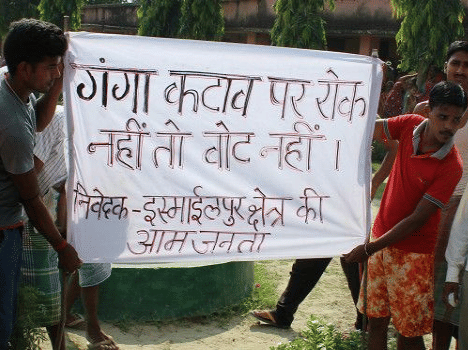 गंगा कटाव पर रोक
नहीं तो वोट नहीं ।
निवेदक - इस्माईलपुर क्षेत्र की
आम जनता